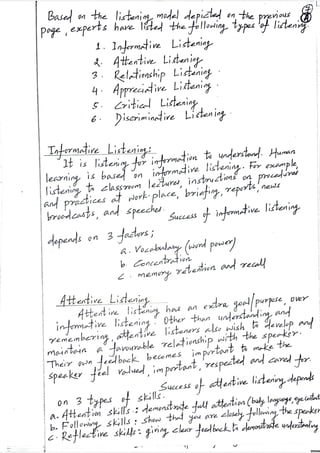 Based on the listening model depicted on the previous
page, experts have listed the following types of listening.
1. Informative Listening
2. Attentive Listening
3. Relationship Listening.
4. Appreciative Listening.
5. Critical Listening
6. Discriminative Listening.
Informative Listening:
It is listening for information to understand. Human
learning is based on informative listening. For example,
listening to classroom lectures, instructions on procedures
and practices at work-place, briefing, reports, news
broadcasts, and speeches.
Success of informative listening
depends on 3 factors;
a. Vocabulary (word power)
b. Concentration
c. memory, retention and recall
Attentive Listening
Attentive listening has an extra goal/purpose over
informative listening. Other than understanding, and
remembering, attentive listeners also wish to develop and
maintain a favourable relationship with the speaker.
Their own feedback becomes important to make the
speaker feel valued, important, respected and cared for.
Success of attentive listening, depends
on 3 types of skills.
a. Attention skills: demonstrate full attention (body language, eye contact)
b. Following skills: show that you are closely following the speaker
c. Reflective skills: giving clear feedback to demonstrate understanding